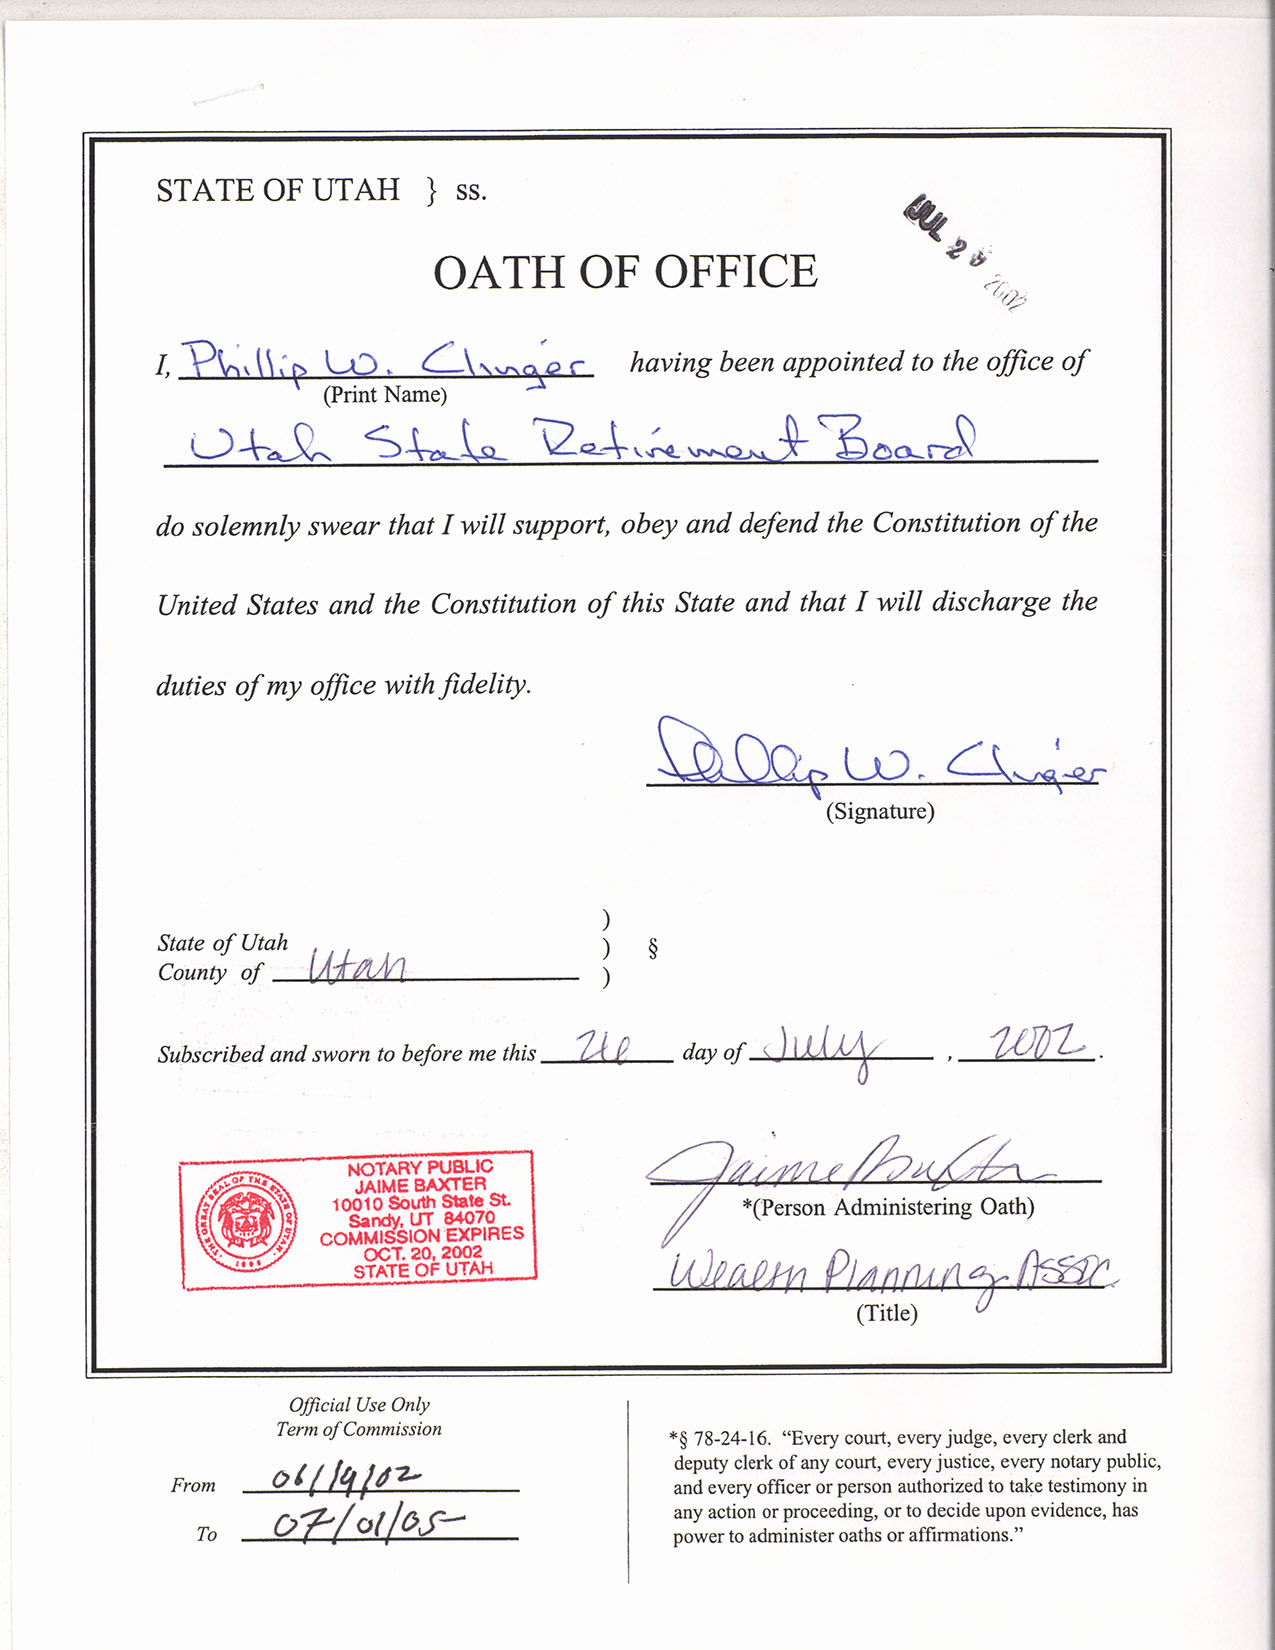 STATE OF UTAH } ss.
JUL 2 2002
OATH OF OFFICE
I, Phillip W. Clinger having been appointed to the office of
(Print Name)
Utah State Retirement Board
do solemnly swear that I will support, obey and defend the Constitution of the
United States and the Constitution of this State and that I will discharge the
duties of my office with fidelity.
Phillip W. Clinger
(Signature)
)
State of Utah ) §
County of Utah )
Subscribed and sworn to before me this 26 day of July , 2002 .
NOTARY PUBLIC
JAIME BAXTER
10010 South State St.
Sandy, UT 84070
COMMISSION EXPIRES
OCT. 20, 2002
STATE OF UTAH
THE GREAT SEAL OF THE STATE OF UTAH
1896
Jaime Baxter
*(Person Administering Oath)
Wealth Planning Assoc.
(Title)
Official Use Only
Term of Commission
From 06/19/02
To 07/01/05
*§ 78-24-16. “Every court, every judge, every clerk and
deputy clerk of any court, every justice, every notary public,
and every officer or person authorized to take testimony in
any action or proceeding, or to decide upon evidence, has
power to administer oaths or affirmations.”